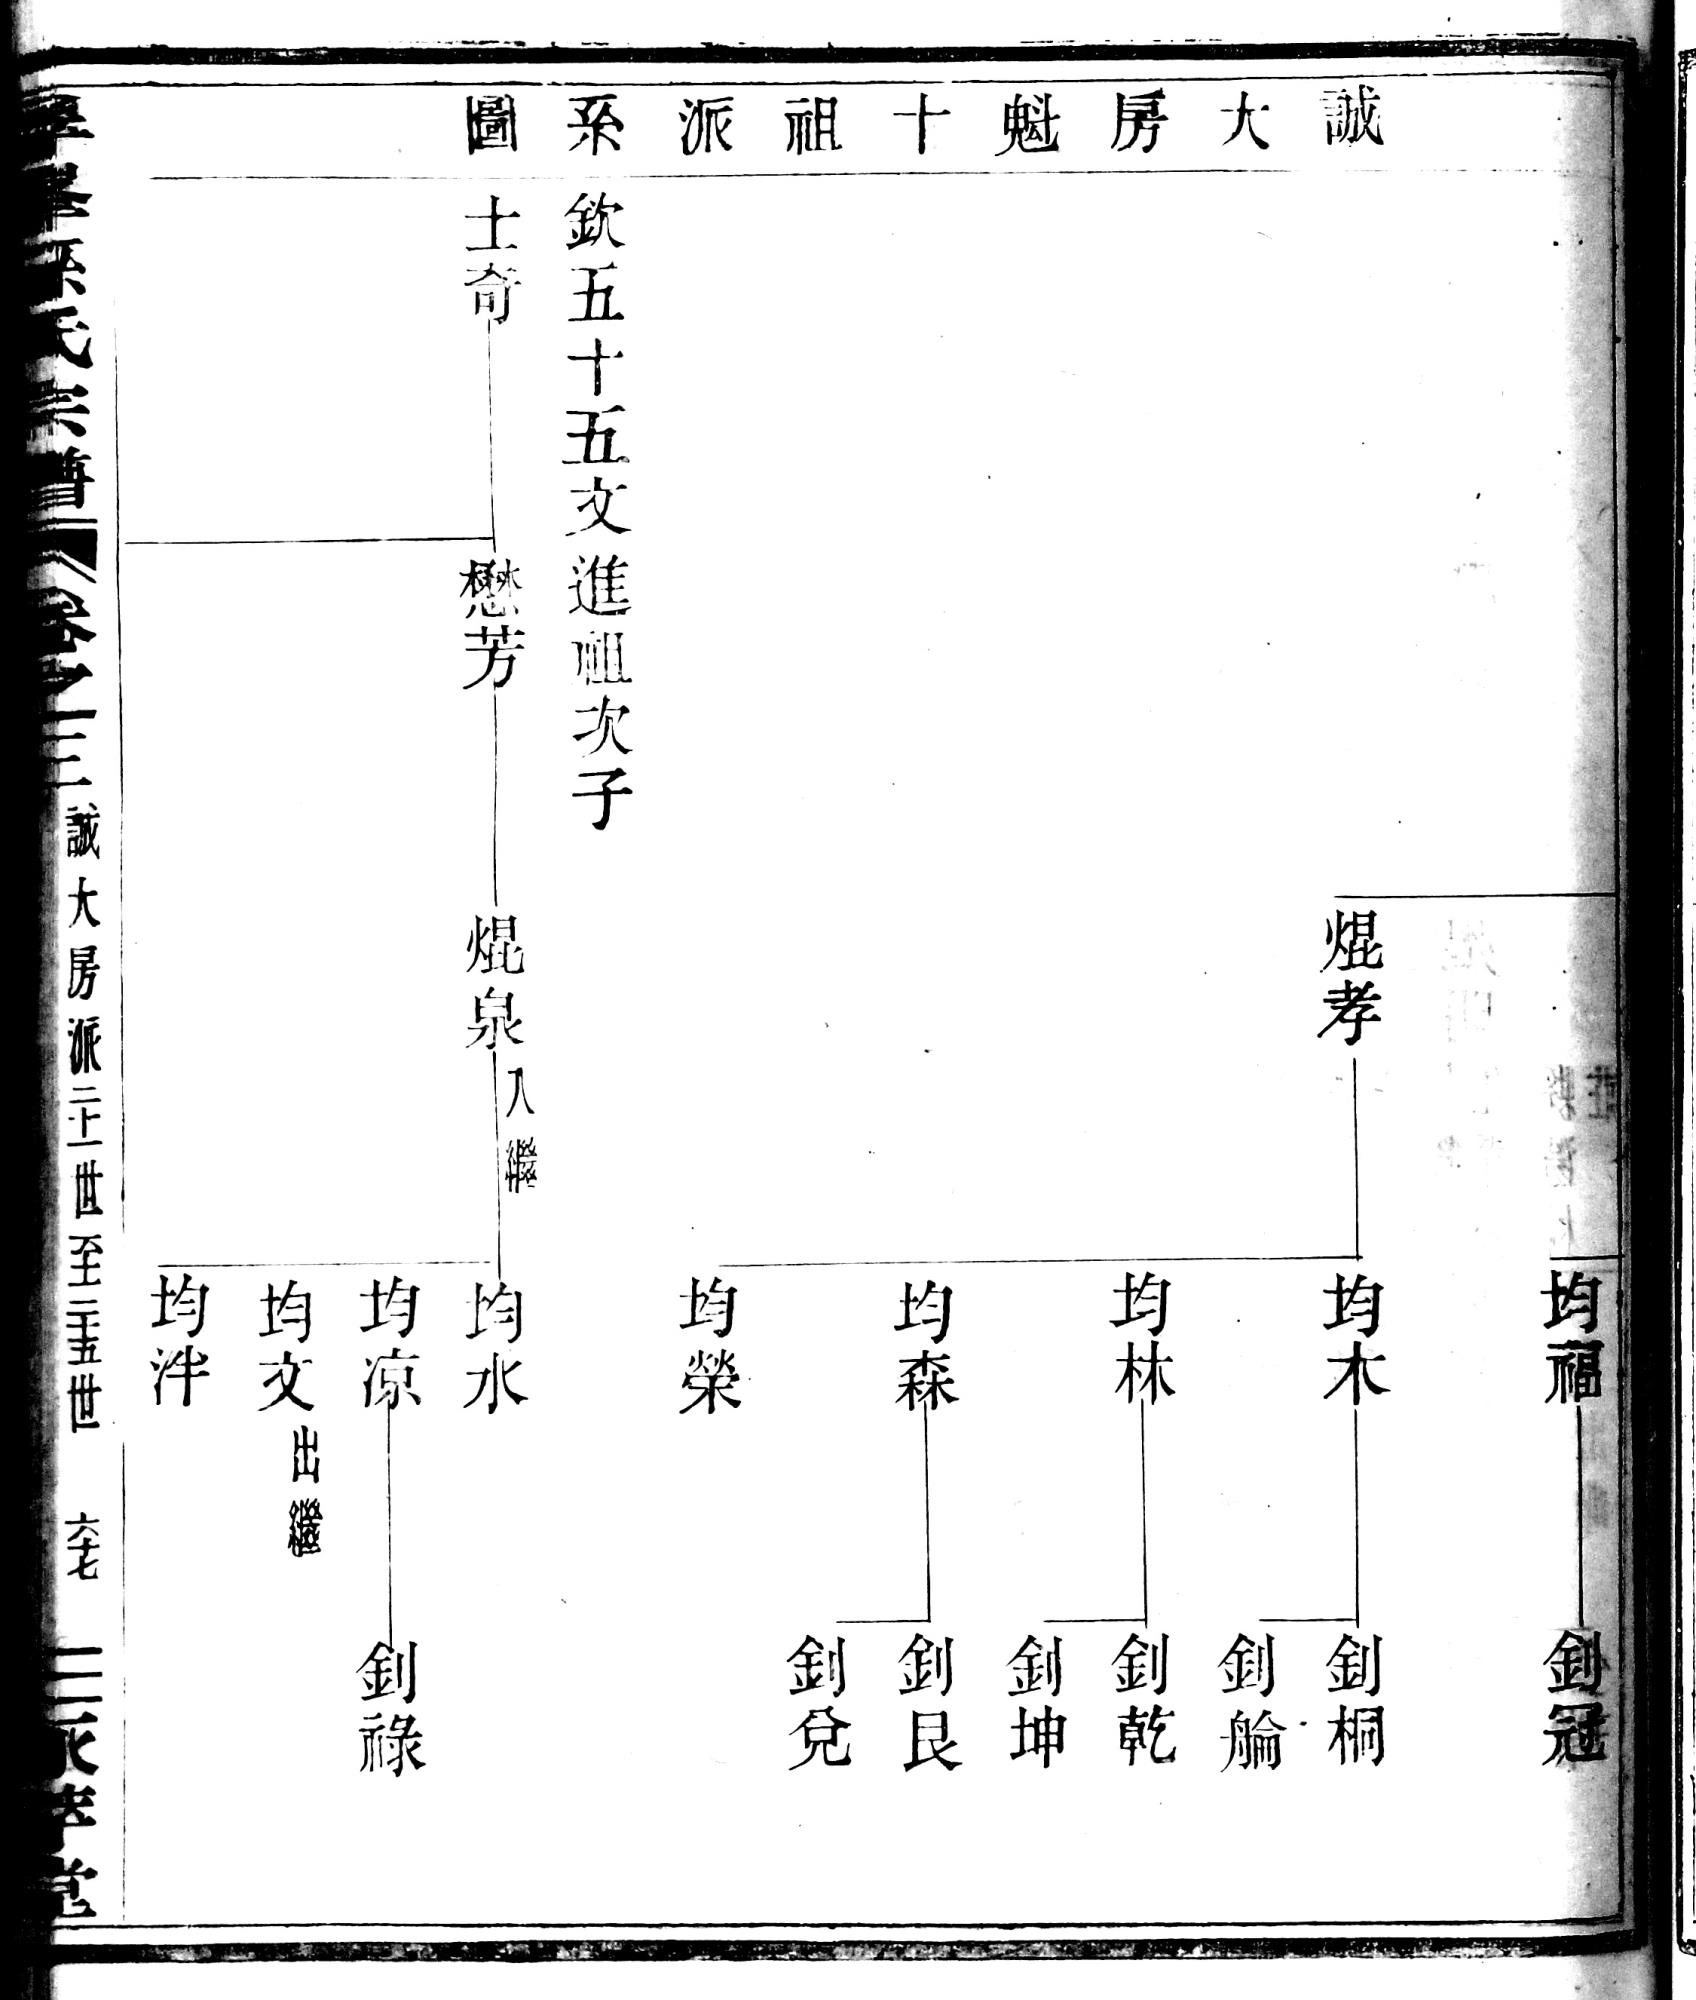 誠大房魁十祖派系圖
均福
釗冠
焜孝
均木
釗桐
釗艑
均林
釗乾
釗坤
均森
釗艮
釗兌
均榮
欽五十五文進祖次子
士奇
懋芳
焜泉入繼
均水
均凉
釗祿
均文出繼
均泮
孫氏宗譜
卷十三
誠大房派二十一世至二十五世
六十七
堂